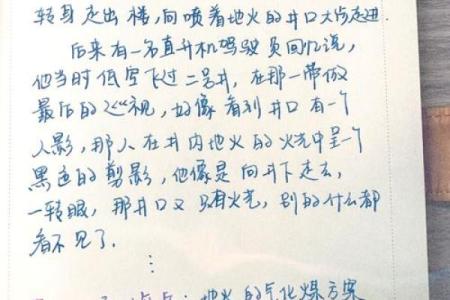 转身走出楼，向喷着地火的井口大步走进.
后来有一名直升机驾驶员回忆说，
他当时低空飞过二号井，在那一带做
最后的巡视，好像看到井口有一个
人影，那人在井内地火的火光中呈一个
黑色的剪影，他像是向井下走去，
一转眼，那井口又只有火光，别的什么都
看不见了.
⋮
：地火的气化煤方案